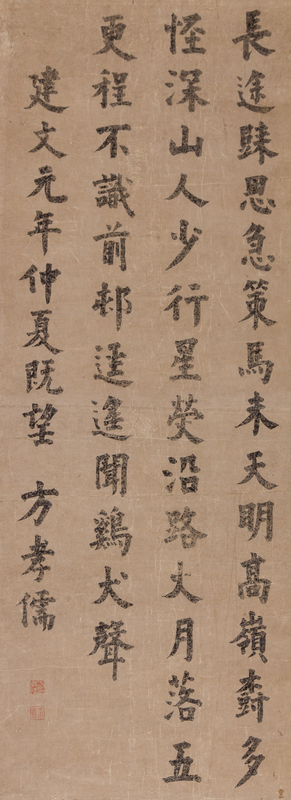 長途思急策馬未天明高嶺多
恠深山人少行星熒沿路火月落五
更程不識前邨遙聞鷄犬聲
建文元年仲夏既望 方孝儒